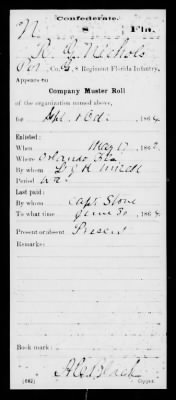 Confederate.
N 8 Fla.
R. G. Nichols
Pvt, Co. G, 8 Regiment Florida Infantry.
Appears on
Company Muster Roll
of the organization named above,
for Sept & Oct, 1864.
Enlisted:
When May 15, 1862.
Where Orlando Fla
By whom
Period war
Last paid:
By whom Capt. Stone
To what time June 30, 1864.
Present or absent Present
Remarks:
Book mark:
(642) Copyist.